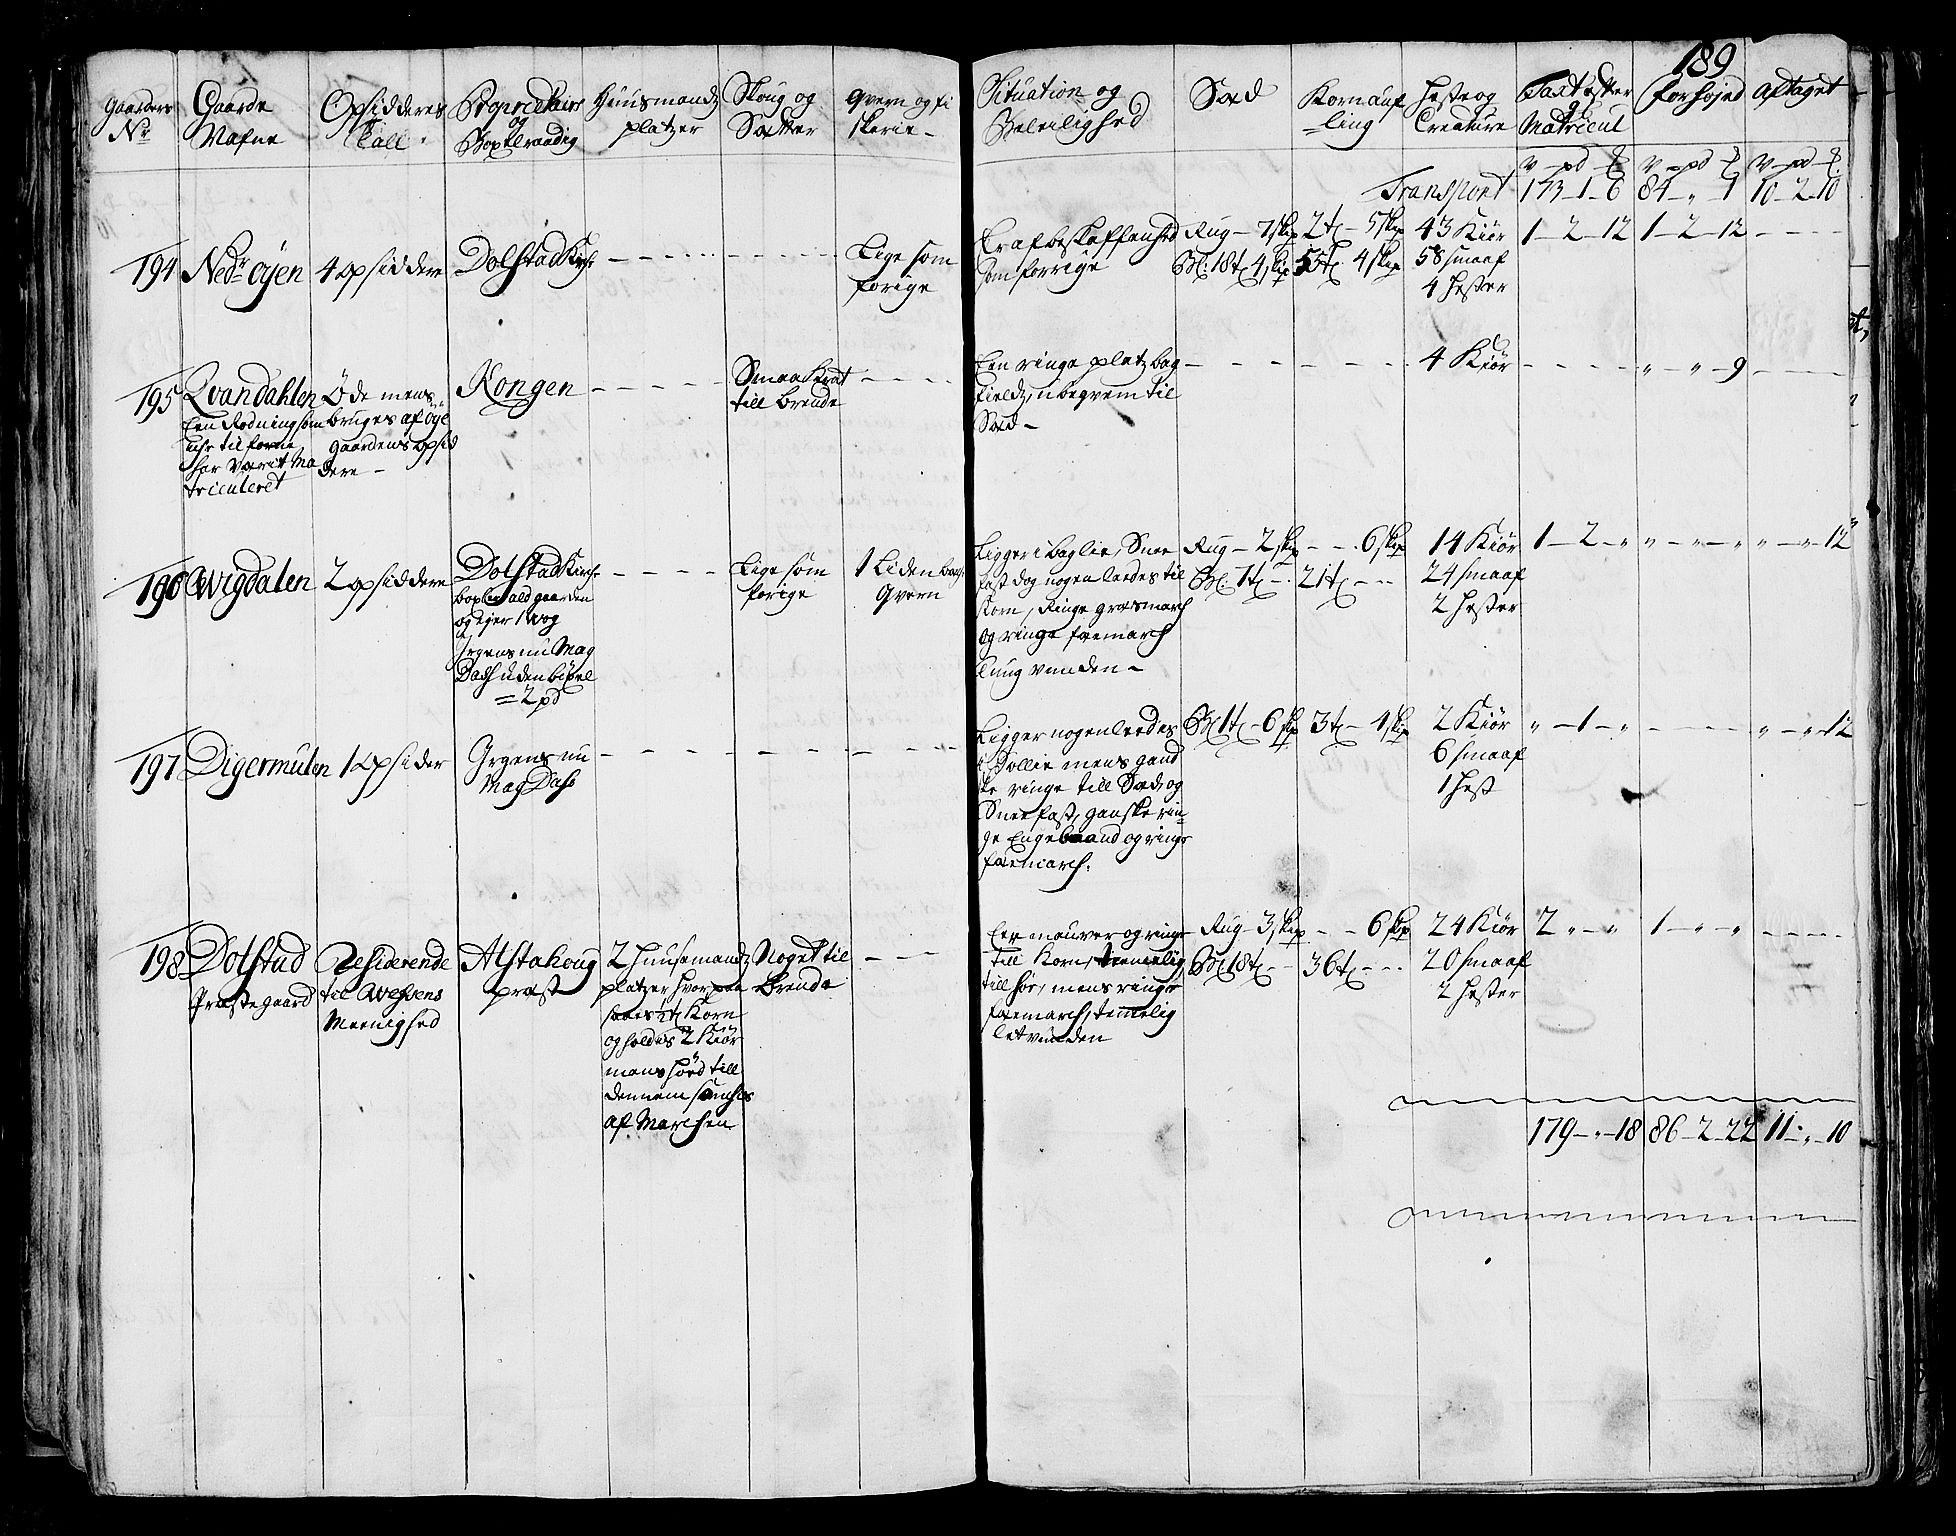 189
Gaardens Nr.
Gaarde Nafne
Opsidderes Tall
Proprietairs og Boxelraadig
Huusmandz platzer
Skoug og Sætter
Qvern og fiskerie
Situation og Beleilighed
Sæd
Kornaufling
Heste og Creature
Taxt efter Matricul
Forhøjed
Aftaget
V pd V pd V pd
Transport 173-1-6 84-"-1 10-2-10
194 Nedr øyen
4 opsiddere
Dolstad Kirche
Lige som
forige
Er af beskaffenhed
som forrige
Rug - 7 skp
Bl: 18 t 4 skp
2 t - 5 skp
55 t 4 skp
43 Kiør
58 smaaf
4 Hester
1-2-12 1-2-12
195 Qvandahlen
Een Rødning som
til forne
har værit Ma
triculeret
Øde mens
bruges af øye
gaardens opsid
dere
Kongen
Smaa krat
till brende
Een ringe platz bag
fieldz, ubeqvem til
Sæd
4 Kiør
" - " - 9
196 Wigdalen
2 opsiddere
Dolstad Kirche
bøxler ald gaarden
og ejer 1 wog
Hr Jrgens nu Mag
Dass uden bøxel
= 2 pd
Lige som
forige
1 Liden bech
Qvern
Ligger i baglie, Snee
fast dog nogenledes til
Korn, Ringe græsmarch
og ringe fæemarch
tung vunden
Rug - 2 skp
Bl. 7 t
6 skp
21 t
14 Kiør
24 smaaf
2 Hester
1-2-" "-"-" "-"-12
197 Digermulen
1 opsider
Jrgens nu
Mag Dass
Ligger nogenleedes
i Sollie mens gand
ske ringe till Sæd og
Sneefast, ganske rin
ge Engebaand og ringe
fæemarch.
Bl 1 t - 6 skp
3 t - 4 skp
2 Kiør
6 smaaf
1 Hest
"-1-" "-"-12
198 Dolstad
Præstegaard
Residerende
til Wefsens
Meenighed
Alstahoug
præst
2 Huusmandz
platzer, hvorpaa
saaes 2 t Korn
og holdes 2 Kiør
mens hørd till
dennem sanches
af Marchen
Noget til
brende
Een maurer og ringe
till Korn, temmelig
till høe, mens ringe
fæemarch, temelig
letvunden
Rug - 3 skp
Bl 18 t
6 skp
36 t
24 Kiør
20 smaaf
2 Hester
2-"-" 1-"-"
179-"-18 86-2-22 11-"-10